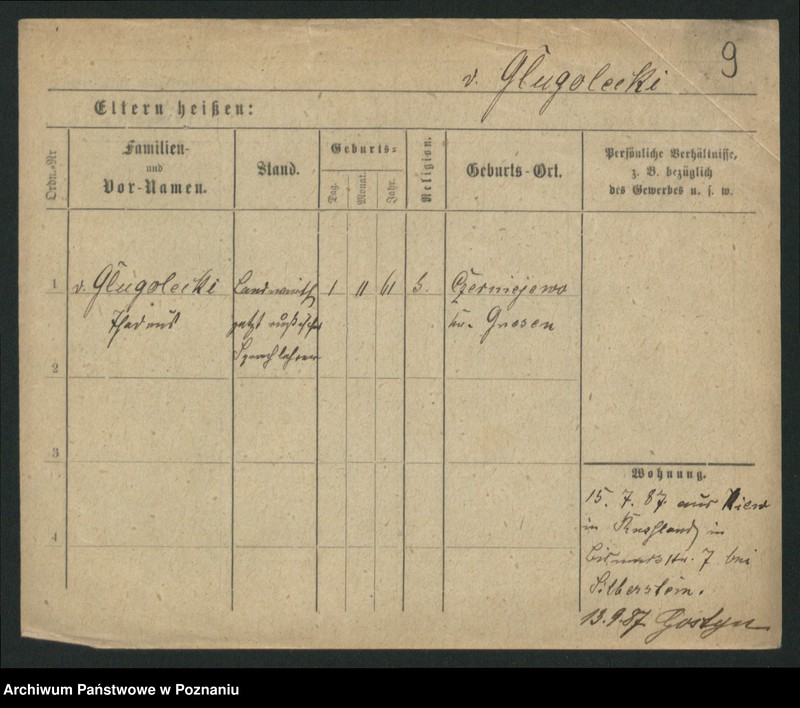 9
v. Glugolecki
Eltern heißen:
Ordn.-Nr
Familien-
und
Vor-Namen.
Stand.
Geburts-
Tag.
Monat.
Jahr.
Religion.
Geburts-Ort.
Persönliche Verhältnisse,
z. B. bezüglich
des Gewerbes u. s. w.
1 v. Glugolecki Landwirth 1 11 61 Czerniejewo
Thadeus jetzt russischer Kr. Gnesen
Sprachlehrer
2
3
4
Wohnung.
15. 7. 87 aus Kiew
in Russland in
Bismarckstr. 7 bei
Silberstein.
13.9.87 Gostyn
Archiwum Państwowe w Poznaniu